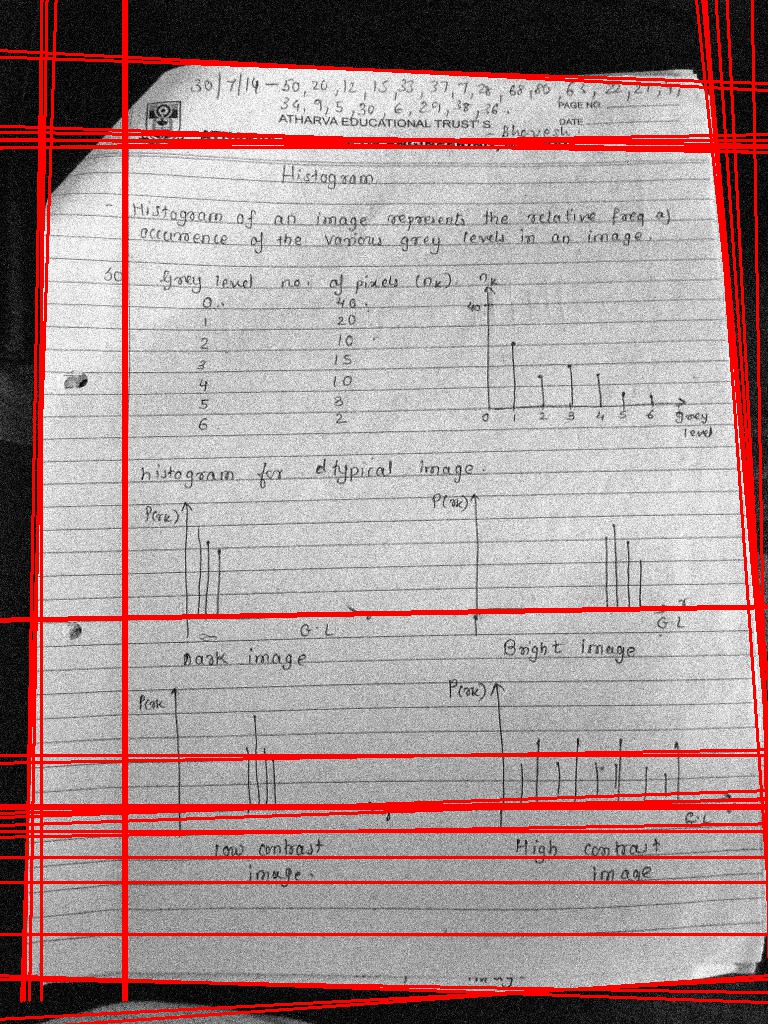 30/7/14 - 50, 20, 12, 15, 33, 37, 7, 28, 68, 80, 63, 22, 21,
34, 9, 5, 30 6, 29, 38, 36.
PAGE NO.
ATHARVA EDUCATIONAL TRUST'S
DATE
- Bhavesh
Histogram
- Histogram of an image represents the relative freq of
occurrence of the various grey levels in an image.
Grey level no. of pixels (nk) nk
0 40 40
1 20
2 10
3 15
4 10
5 3
6 2
0 1 2 3 4 5 6 grey
level
histogram for typical image.
P(rk) P(rk)
G.L r
G L
Dark image Bright image
P(rk P(rk)
G.L
low contrast High contrast
image. image